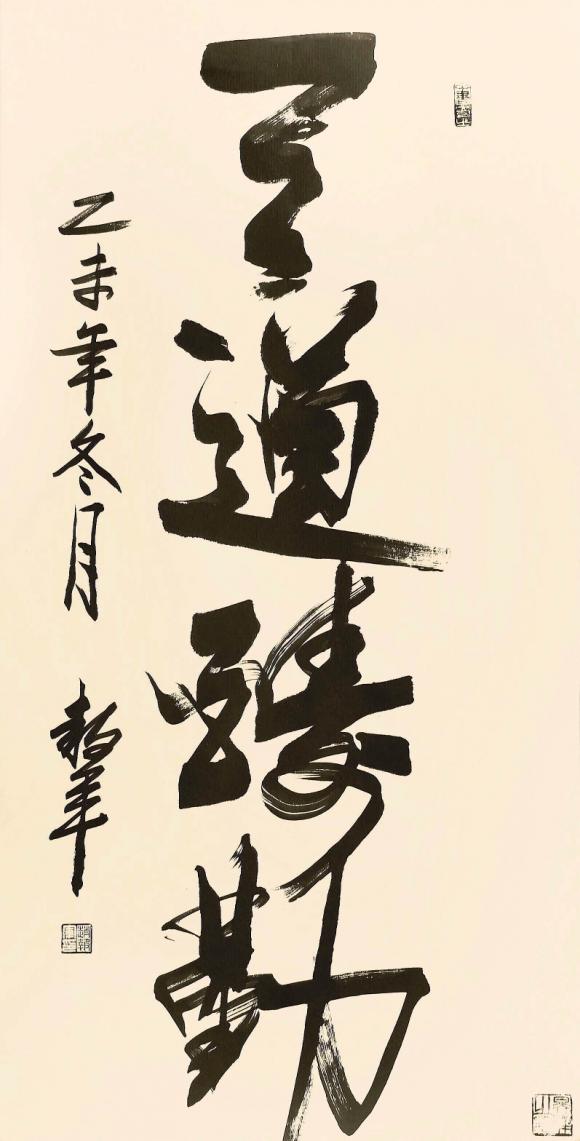 天道酬勤
乙未年冬月